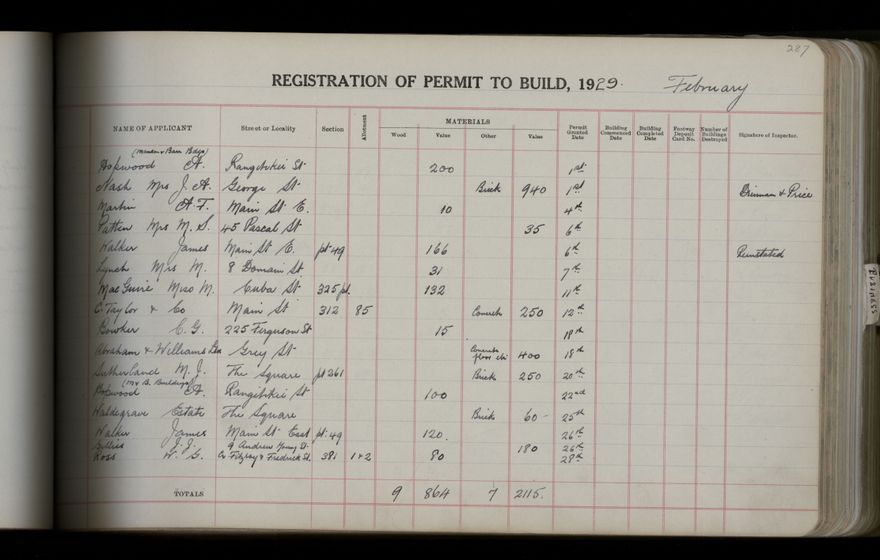 287
REGISTRATION OF PERMIT TO BUILD, 1929. February
NAME OF APPLICANT Street or Locality Section Allotment MATERIALS Wood Value Other Value Permit Granted Date Building Commenced Date Building Completed Date Footway Deposit Card No. Number of Buildings Destroyed Signature of Inspector.
Hopwood A. Rangitikei St 200 1st
Nash Mrs J. A. George St Brick 940 1st
Martin A. F. Main St E. 10 4th
Patten Mrs M. S. 45 Pascal St 35 6th
Walker James Main St E. pt 49 166 6th Reinstated
Lynch Mrs M. 8 Domain St 31 7th
MacGuire Miss M. Cuba St 325 pt 132 11th
C. Taylor & Co Main St 312 85 Concrete 250 12th
Bowker C. G. 225 Ferguson St 15 18th
Abraham & Williams Ltd Grey St Concrete floor etc 400 18th
Sutherland M. J. The Square pt 261 Brick 250 20th
(M & B. Buildings)
Hopwood A. Rangitikei St 100 22nd
Waldegrave Estate The Square Brick 60 - 25th
Walker James Main St East pt 49 120. 26th
Gillies J. J. 9 Andrew Young St 180 26th
Ross W. G. Cr Fitzroy & Fredrick St. 381 1+2 80 28th
TOTALS 9 864 7 2115.
BUSINESS